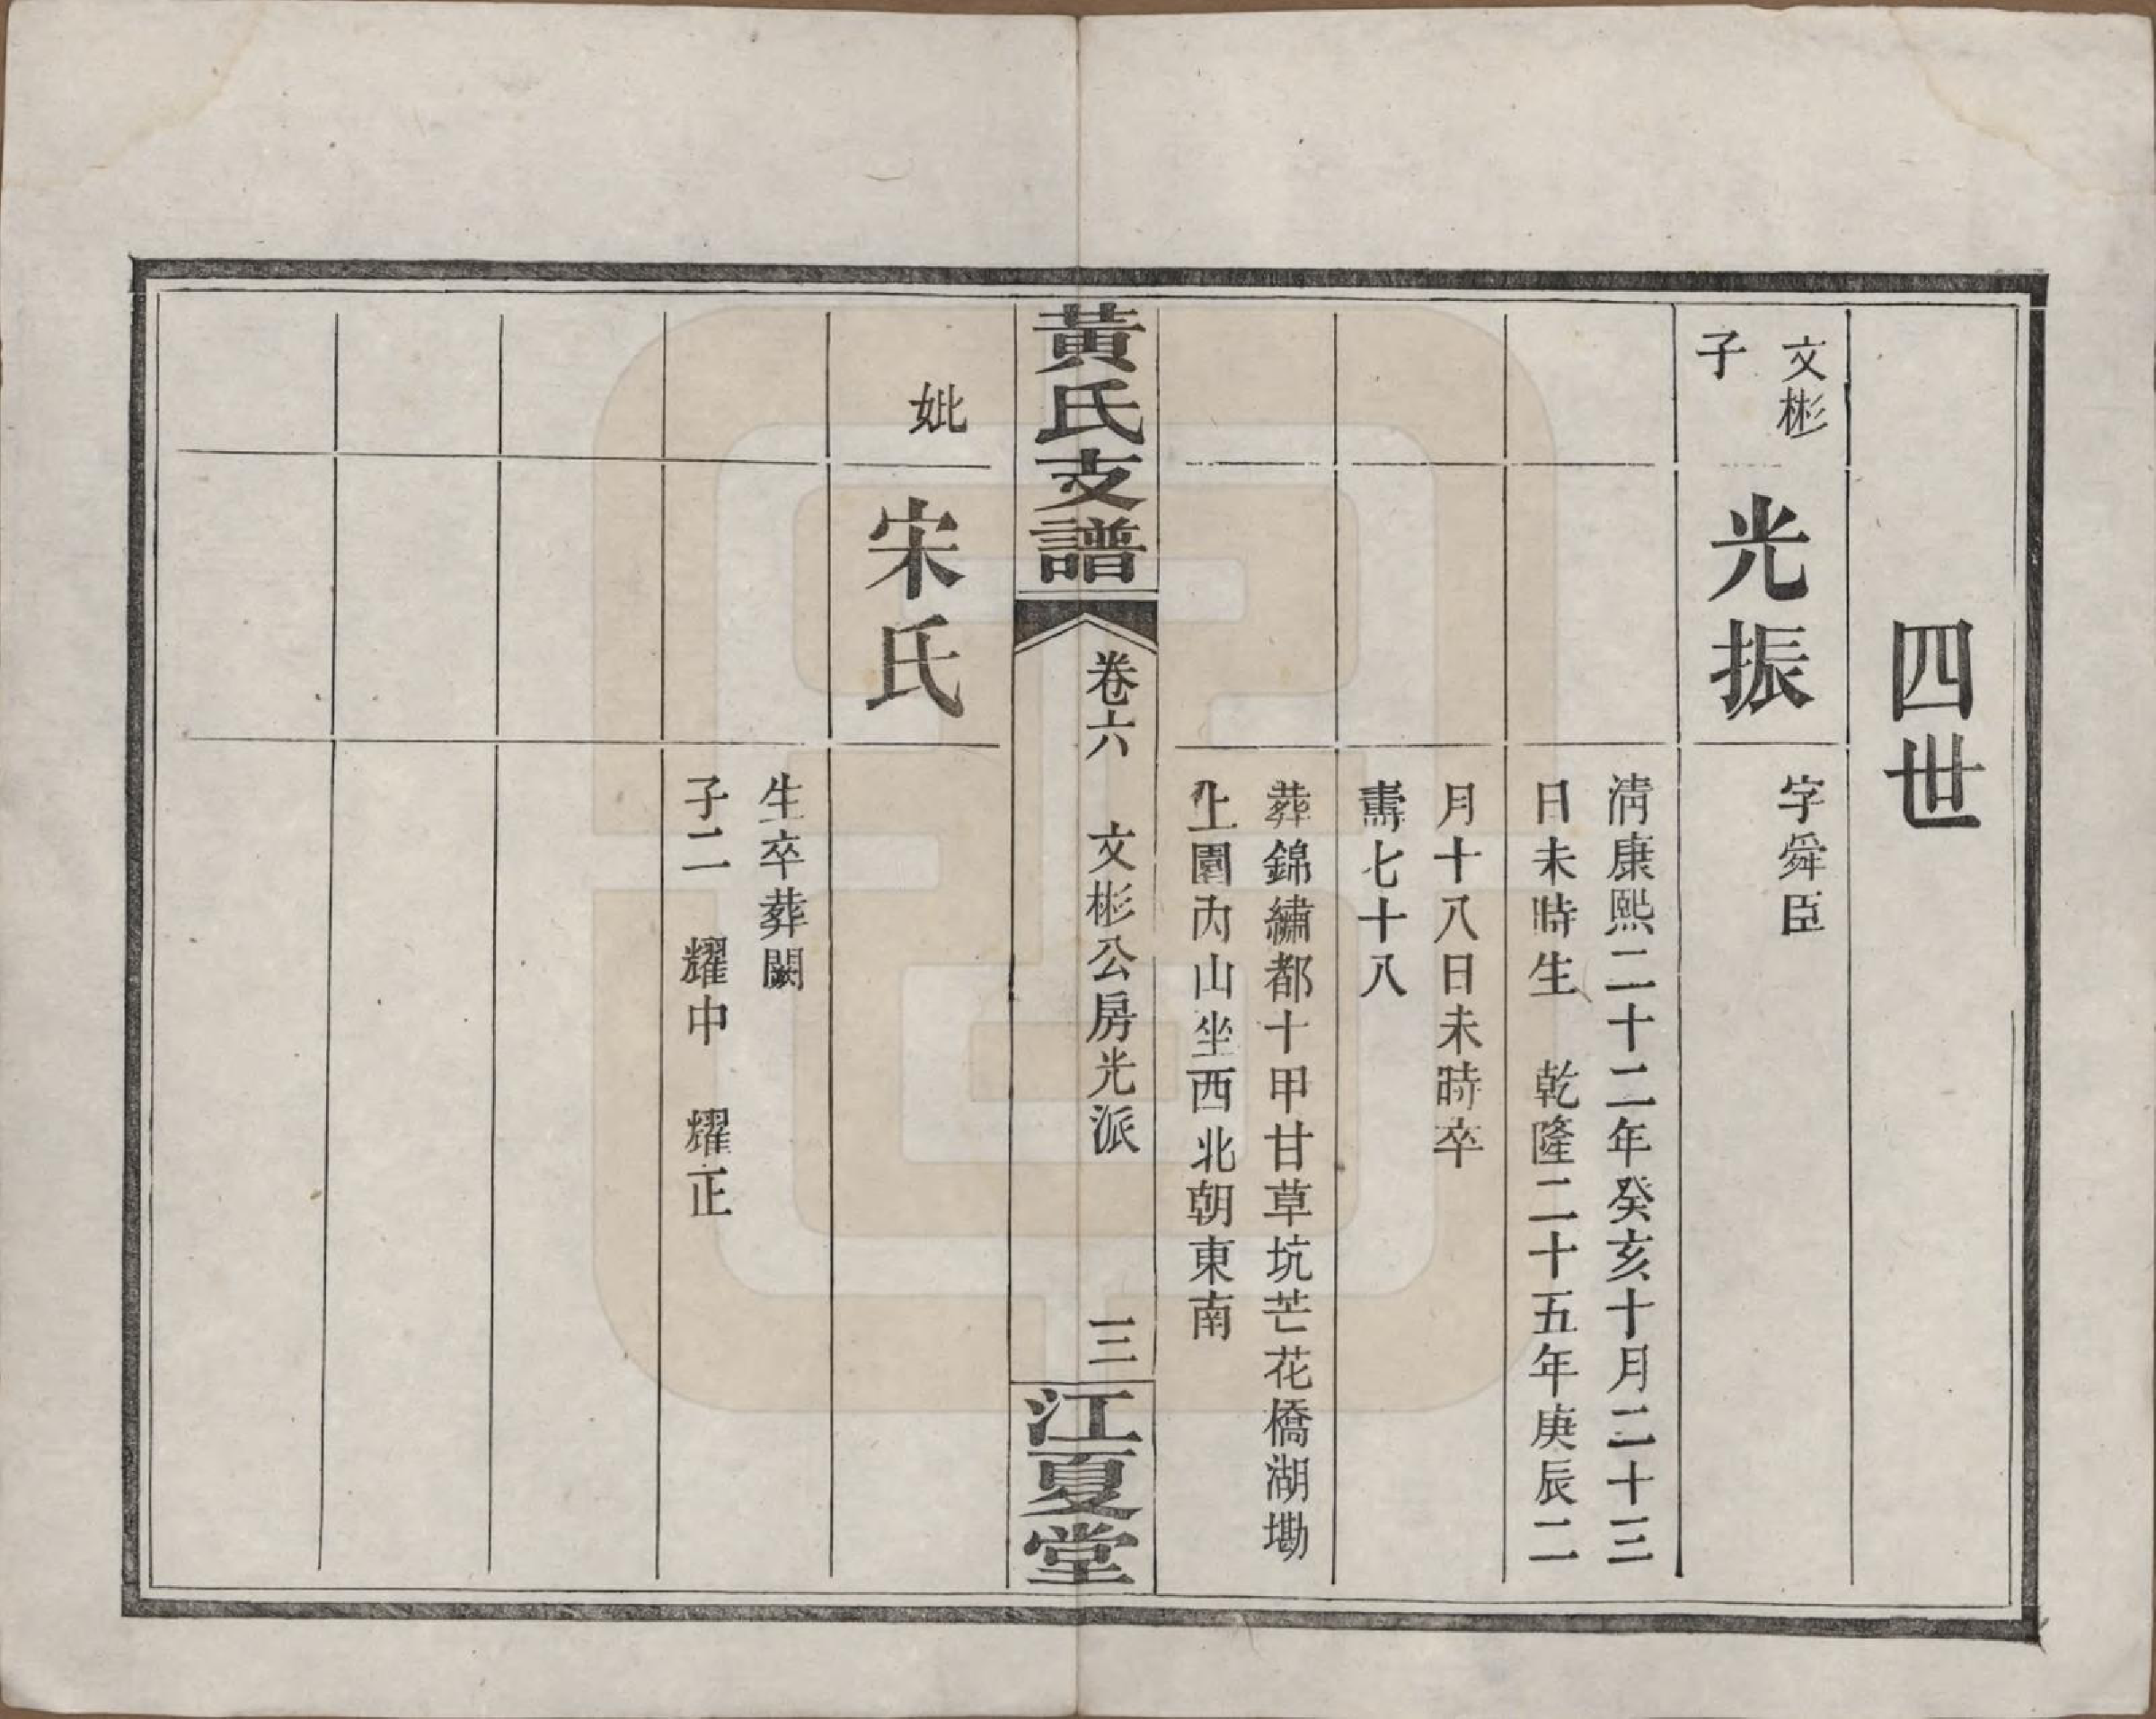 四世
文彬
子
光振
字舜臣
清康熙二十二年癸亥十月二十三
日未時生　乾隆二十五年庚辰二
月十八日未時卒
壽七十八
葬錦繡都十甲甘草坑芒花橋湖墈
上園內山坐西北朝東南
黃氏支譜
卷六　文彬公房光派　三
江夏堂
妣
宋氏
生卒葬闕
子二　耀中　耀正